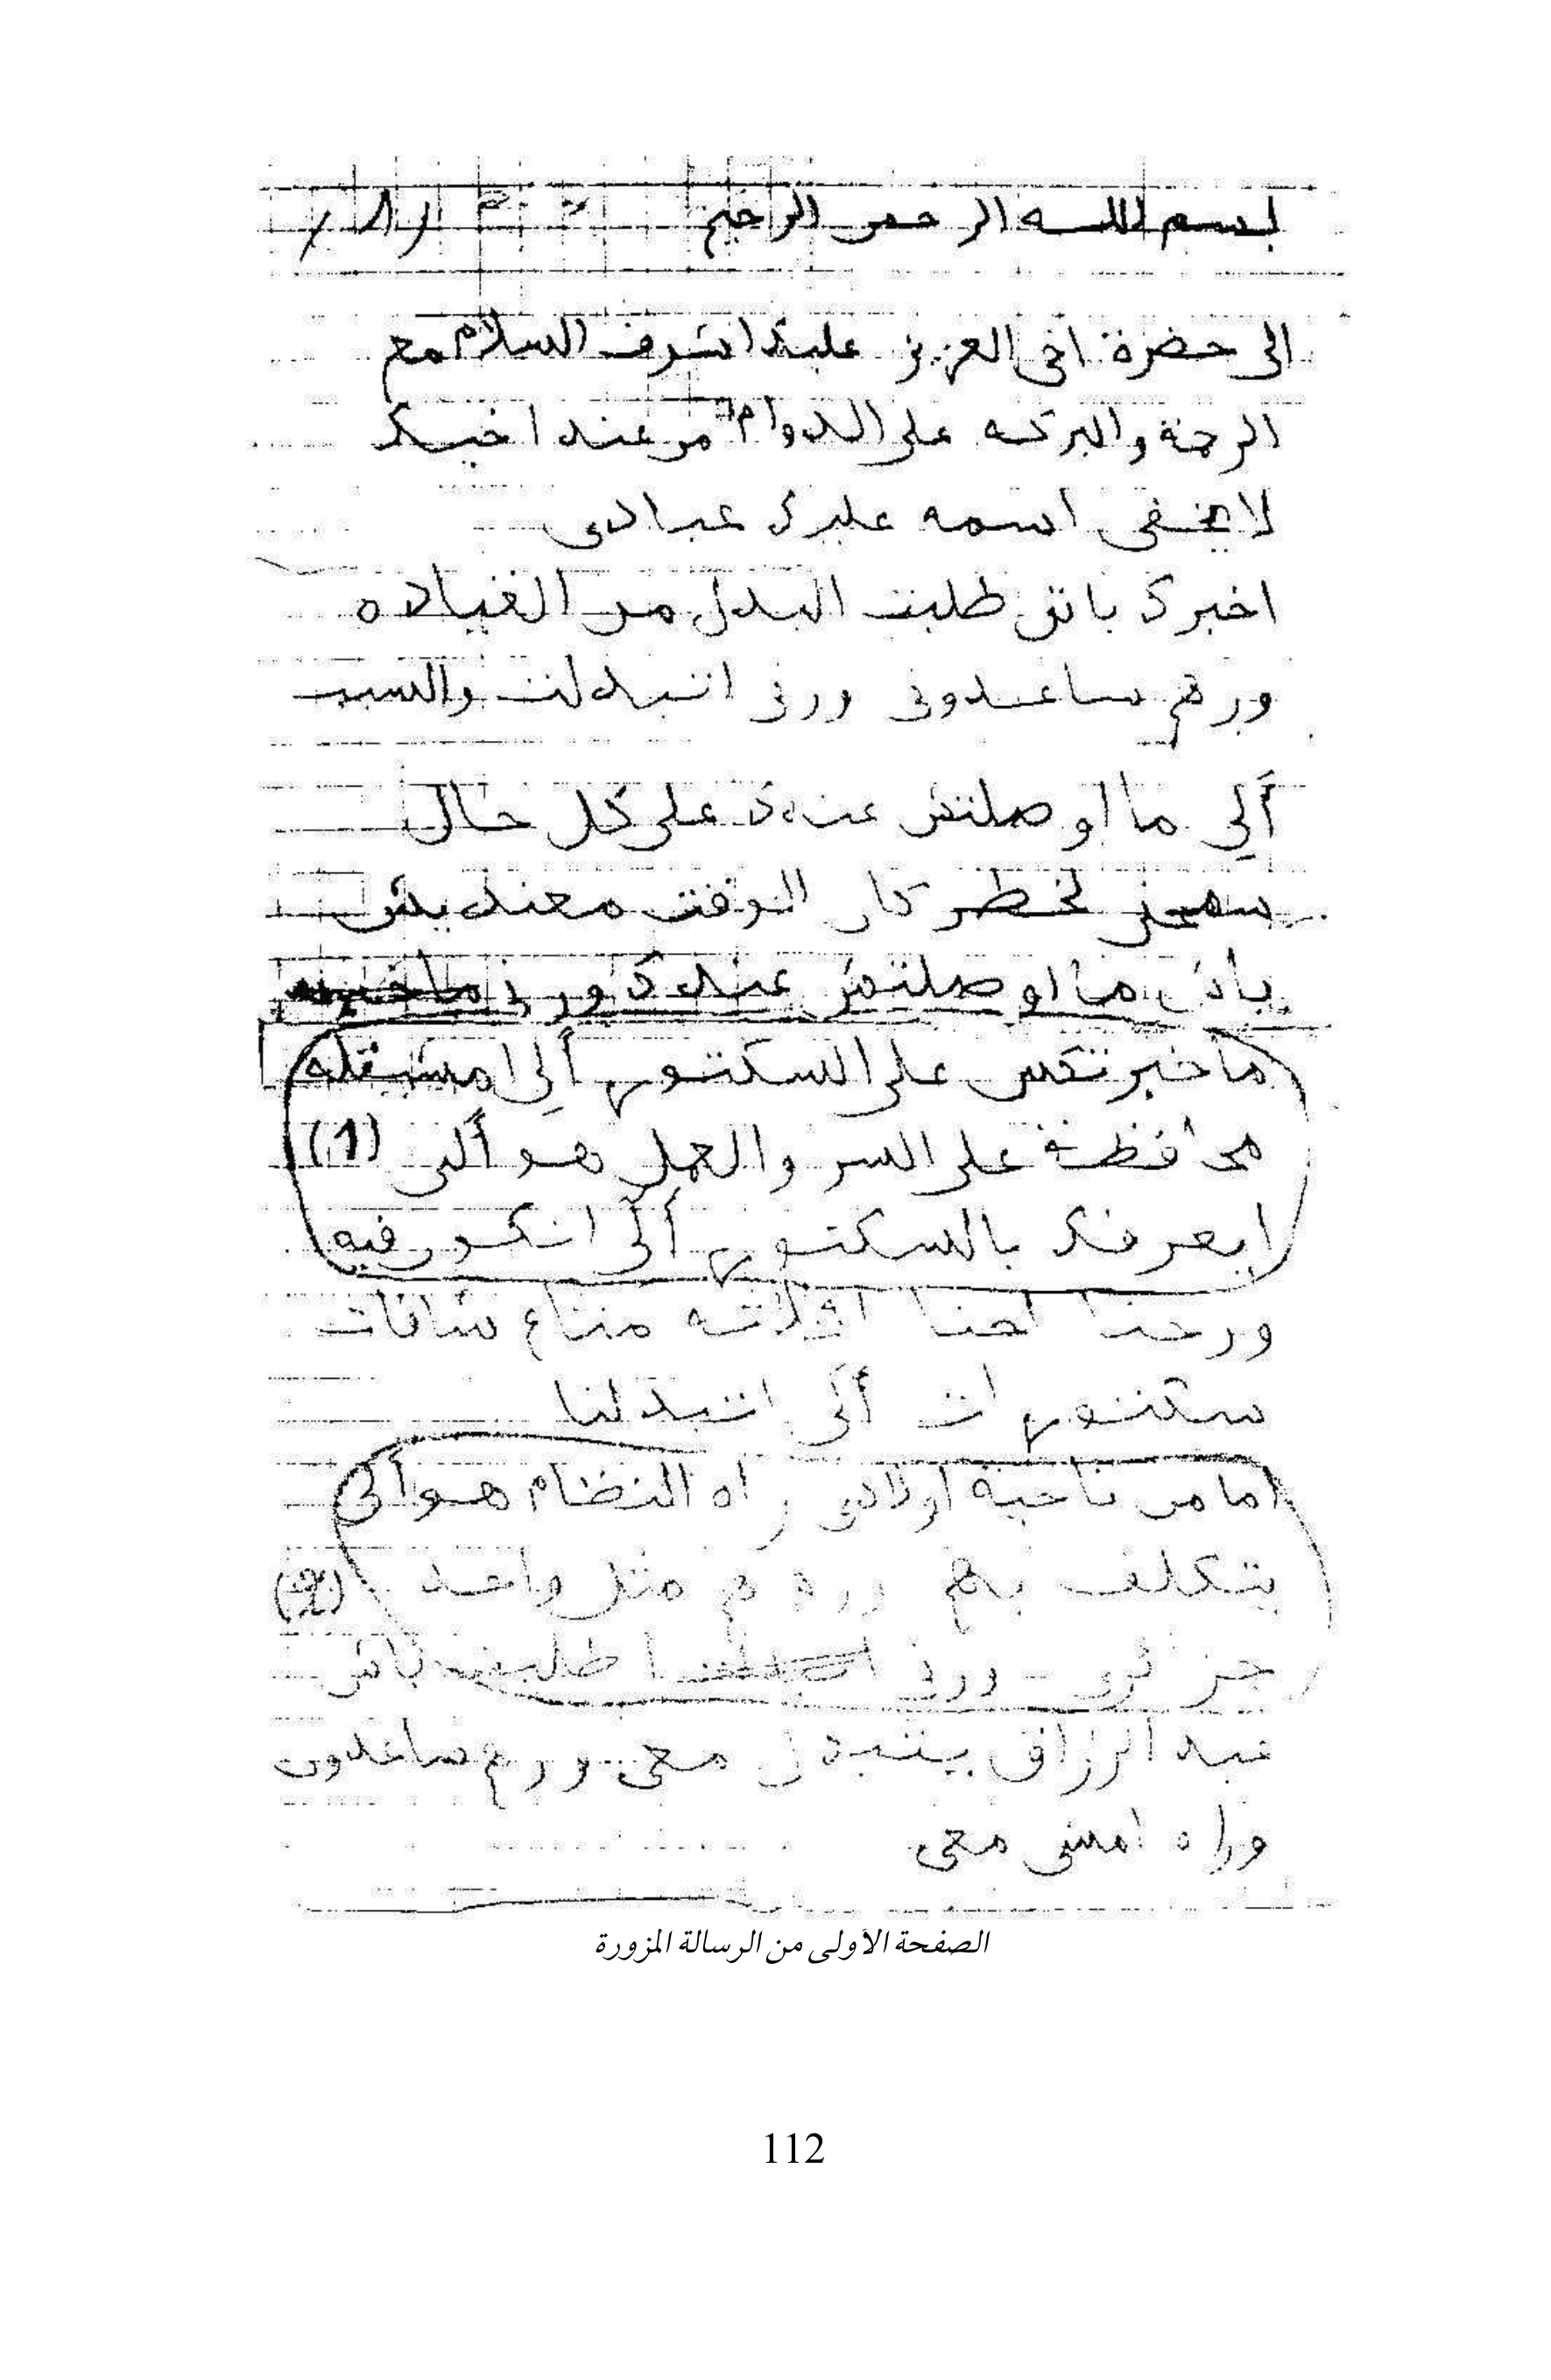 بسم الله الرحمن الرحيم
الى حضرة اخى العزيز عليك اشرف السلام مع
الرحمة والبركه على الدوام من عند اخيك
لا يخفى اسمه عليك عبادى
اخبرك بانى طلبت البدل من القياده
ورهم ساعدونى ورنى اتبدلت والسبب
ألي ما اوصلتش عندك على كل حال
سمحلى لخطر كان الوقت معنديش
باش ما اوصلتش عندك ورنى
ما خبرتكش على السكتور ألي امشيتله
محافظة على السر والعمل هو ألى (1)
ايعرفك بالسكتور ألى انكور فيه
ورحنا احنا اثلاثه متاع شافات
سكتورات ألى اتبدلنا
اما من ناحية اولادى راه النظام هو ألى
يتكلف بهم ورهم مثل واحد (2)
جزائرى ورنى طلبت باش
عبد الرزاق يتبدل معى ورهم ساعدونى
وراه امشى معى
الصفحة الأولى من الرسالة المزورة
112